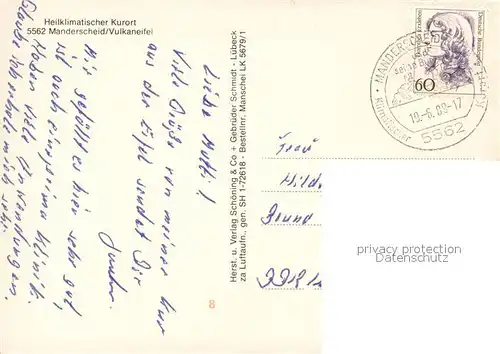 Heilklimatischer Kurort
5562 Manderscheid/Vulkaneifel
Liebe Mutti!
Viele Grüße von meiner Kur
aus der Eifel sendet Dir
Mir gefällt es hier sehr gut
ist auch eine prima Klinik.
Haben viele Anwendungen.
Glaube ich erhole mich sehr.
Herst. u. Verlag Schöning & Co + Gebrüder Schmidt - Lübeck
za Luftaufn., gen. SH 1-72618 - Bestellnr. Manschei LK 5679/1
8
Deutsche Bundespost
60
MANDERSCHEID
5562
Frau
privacy protection
Datenschutz